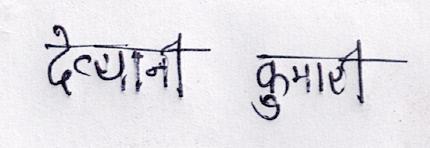 देव्यानी कुमारी